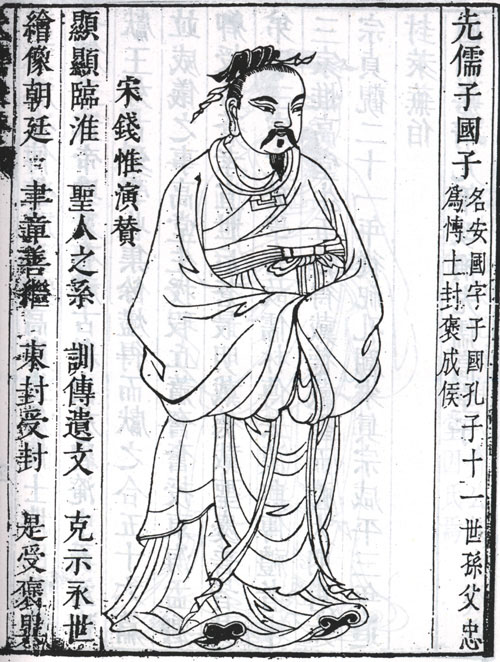 先儒子國子
名安國字子國孔子十一世孫父忠
爲愽士封褒成侯
宋錢惟演贊
顯顯臨淮 聖人之系 訓傳遺文 克示永世
繪像朝廷 聿章善繼 東封受封 是受褒